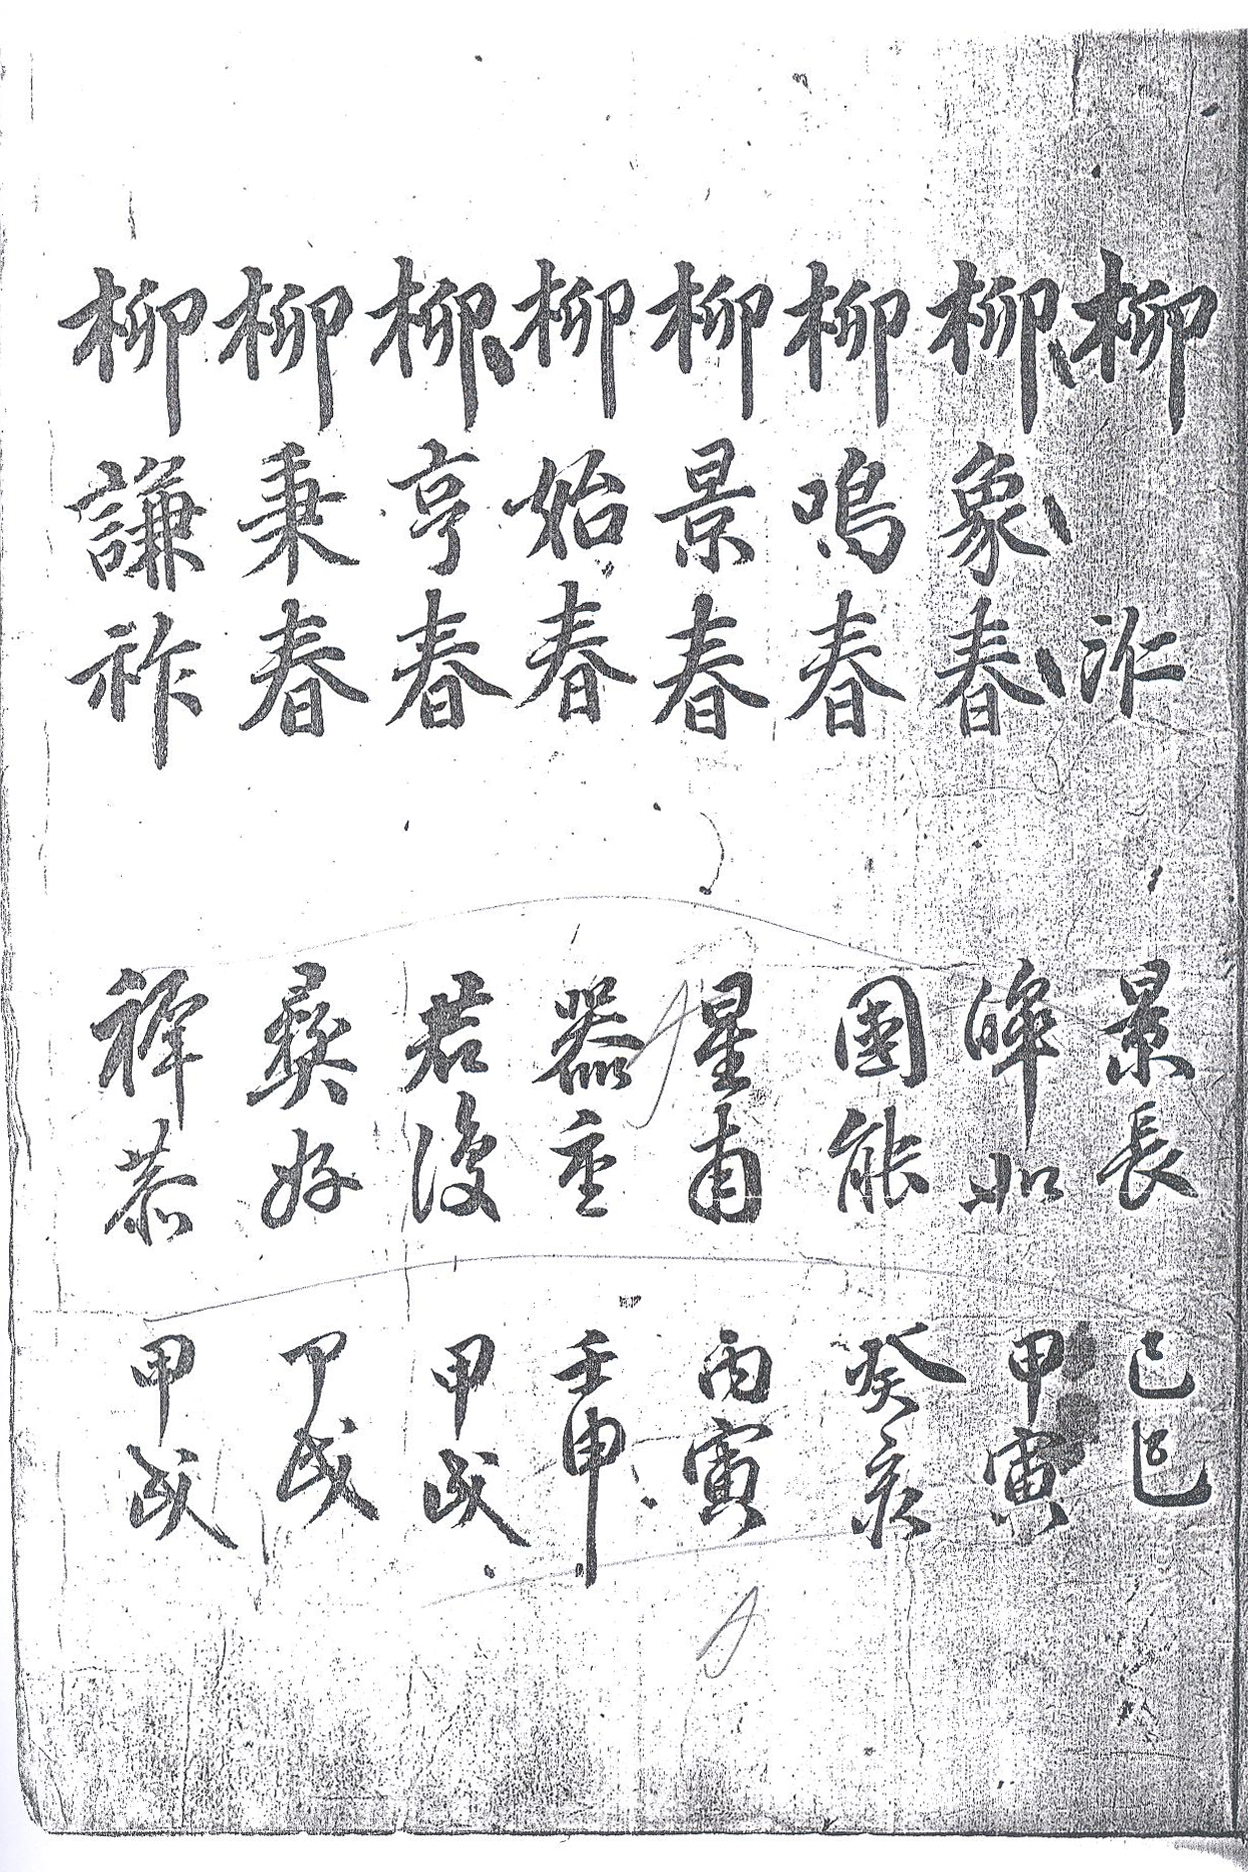 柳 㳂 景長 己巳
柳象春 皞如 甲寅
柳鳴春 國能 癸亥
柳景春 星甫 丙寅
柳始春 器重 壬申
柳亨春 君復 甲戌
柳秉春 彛好 甲戌
柳謙祚 禆恭 甲戌